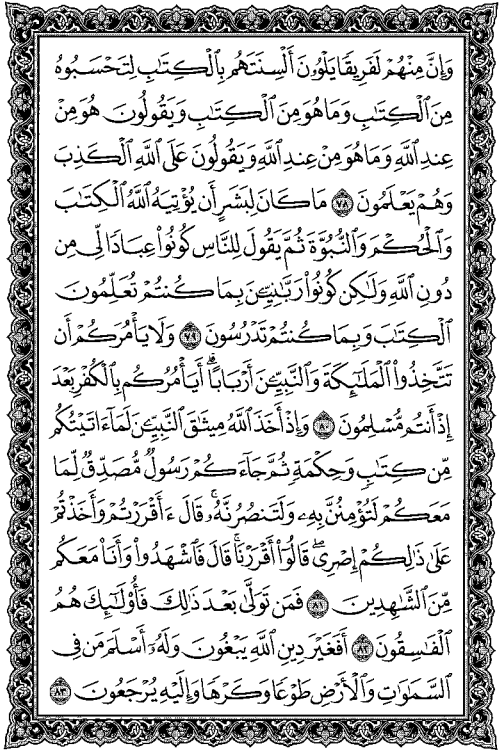 وَإِنَّ مِنْهُمْ لَفَرِيقًا يَلْوُۥنَ أَلْسِنَتَهُم بِالْكِتَٰبِ لِتَحْسَبُوهُ
مِنَ الْكِتَٰبِ وَمَا هُوَ مِنَ الْكِتَٰبِ وَيَقُولُونَ هُوَ مِنْ
عِندِ اللَّهِ وَمَا هُوَ مِنْ عِندِ اللَّهِ وَيَقُولُونَ عَلَى اللَّهِ الْكَذِبَ
وَهُمْ يَعْلَمُونَ ٧٨ مَا كَانَ لِبَشَرٍ أَن يُؤْتِيَهُ اللَّهُ الْكِتَٰبَ
وَالْحُكْمَ وَالنُّبُوَّةَ ثُمَّ يَقُولَ لِلنَّاسِ كُونُوا۟ عِبَادًا لِّى مِن
دُونِ اللَّهِ وَلَٰكِن كُونُوا۟ رَبَّٰنِيِّۦنَ بِمَا كُنتُمْ تُعَلِّمُونَ
الْكِتَٰبَ وَبِمَا كُنتُمْ تَدْرُسُونَ ٧٩ وَلَا يَأْمُرَكُمْ أَن
تَتَّخِذُوا۟ الْمَلَٰٓئِكَةَ وَالنَّبِيِّۦنَ أَرْبَابًا ۗ أَيَأْمُرُكُم بِالْكُفْرِ بَعْدَ
إِذْ أَنتُم مُّسْلِمُونَ ٨٠ وَإِذْ أَخَذَ اللَّهُ مِيثَٰقَ النَّبِيِّۦنَ لَمَآ ءَاتَيْتُكُم
مِّن كِتَٰبٍ وَحِكْمَةٍ ثُمَّ جَآءَكُمْ رَسُولٌ مُّصَدِّقٌ لِّمَا
مَعَكُمْ لَتُؤْمِنُنَّ بِهِۦ وَلَتَنصُرُنَّهُۥ ۚ قَالَ ءَأَقْرَرْتُمْ وَأَخَذْتُمْ
عَلَىٰ ذَٰلِكُمْ إِصْرِى ۖ قَالُوٓا۟ أَقْرَرْنَا ۚ قَالَ فَاشْهَدُوا۟ وَأَنَا۠ مَعَكُم
مِّنَ الشَّٰهِدِينَ ٨١ فَمَن تَوَلَّىٰ بَعْدَ ذَٰلِكَ فَأُو۟لَٰٓئِكَ هُمُ
الْفَٰسِقُونَ ٨٢ أَفَغَيْرَ دِينِ اللَّهِ يَبْغُونَ وَلَهُۥٓ أَسْلَمَ مَن فِى
السَّمَٰوَٰتِ وَالْأَرْضِ طَوْعًا وَكَرْهًا وَإِلَيْهِ يُرْجَعُونَ ٨٣